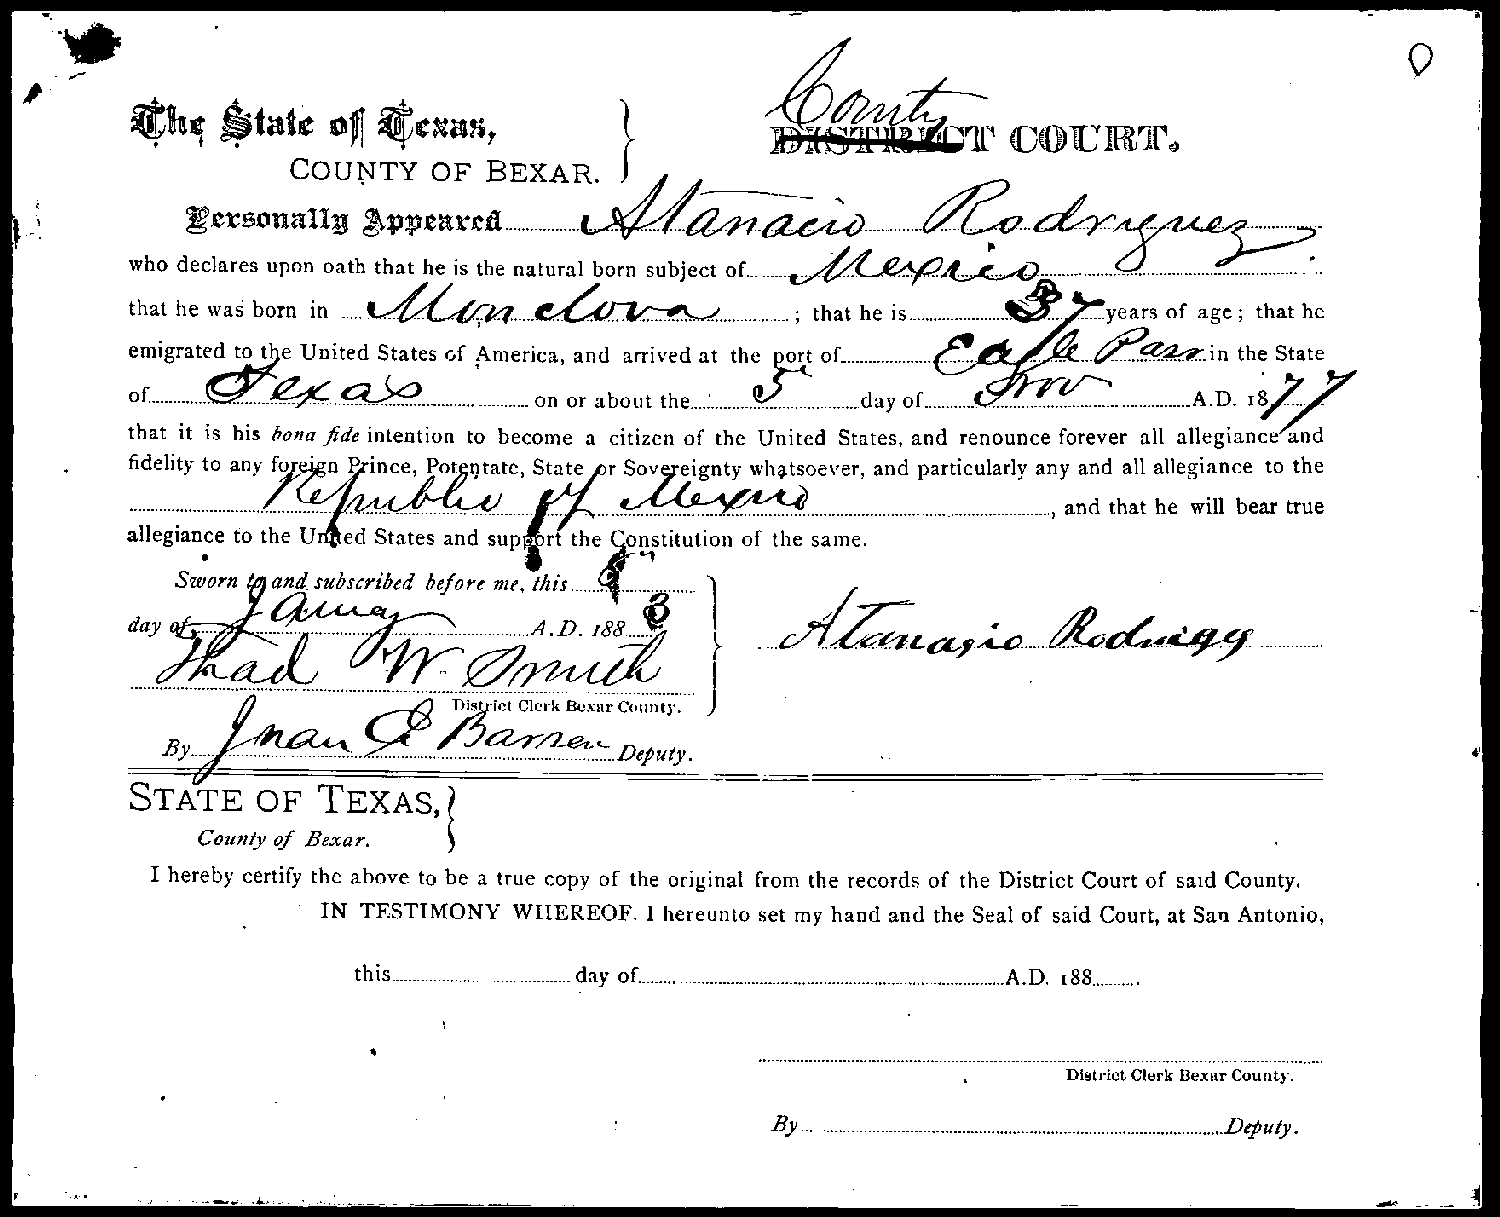 County
The State of Texas, DISTRICT COURT.
COUNTY OF BEXAR.
Personally Appeared Atanacio Rodriguez
who declares upon oath that he is the natural born subject of Mexico
that he was born in Monclova ; that he is 37 years of age; that he
emigrated to the United States of America, and arrived at the port of Eagle Pass in the State
of Texas on or about the 5 day of Nov A.D. 1877
that it is his bona fide intention to become a citizen of the United States, and renounce forever all allegiance and
fidelity to any foreign Prince, Potentate, State or Sovereignty whatsoever, and particularly any and all allegiance to the
Republic of Mexico , and that he will bear true
allegiance to the United States and support the Constitution of the same.
Sworn to and subscribed before me, this
day of A.D. 188 Atanasio Rodriguez
Thad W. Smith
District Clerk Bexar County.
By Juan E Barrera Deputy.
STATE OF TEXAS,
County of Bexar.
I hereby certify the above to be a true copy of the original from the records of the District Court of said County.
IN TESTIMONY WHEREOF, I hereunto set my hand and the Seal of said Court, at San Antonio,
this day of A.D. 188
District Clerk Bexar County.
By Deputy.